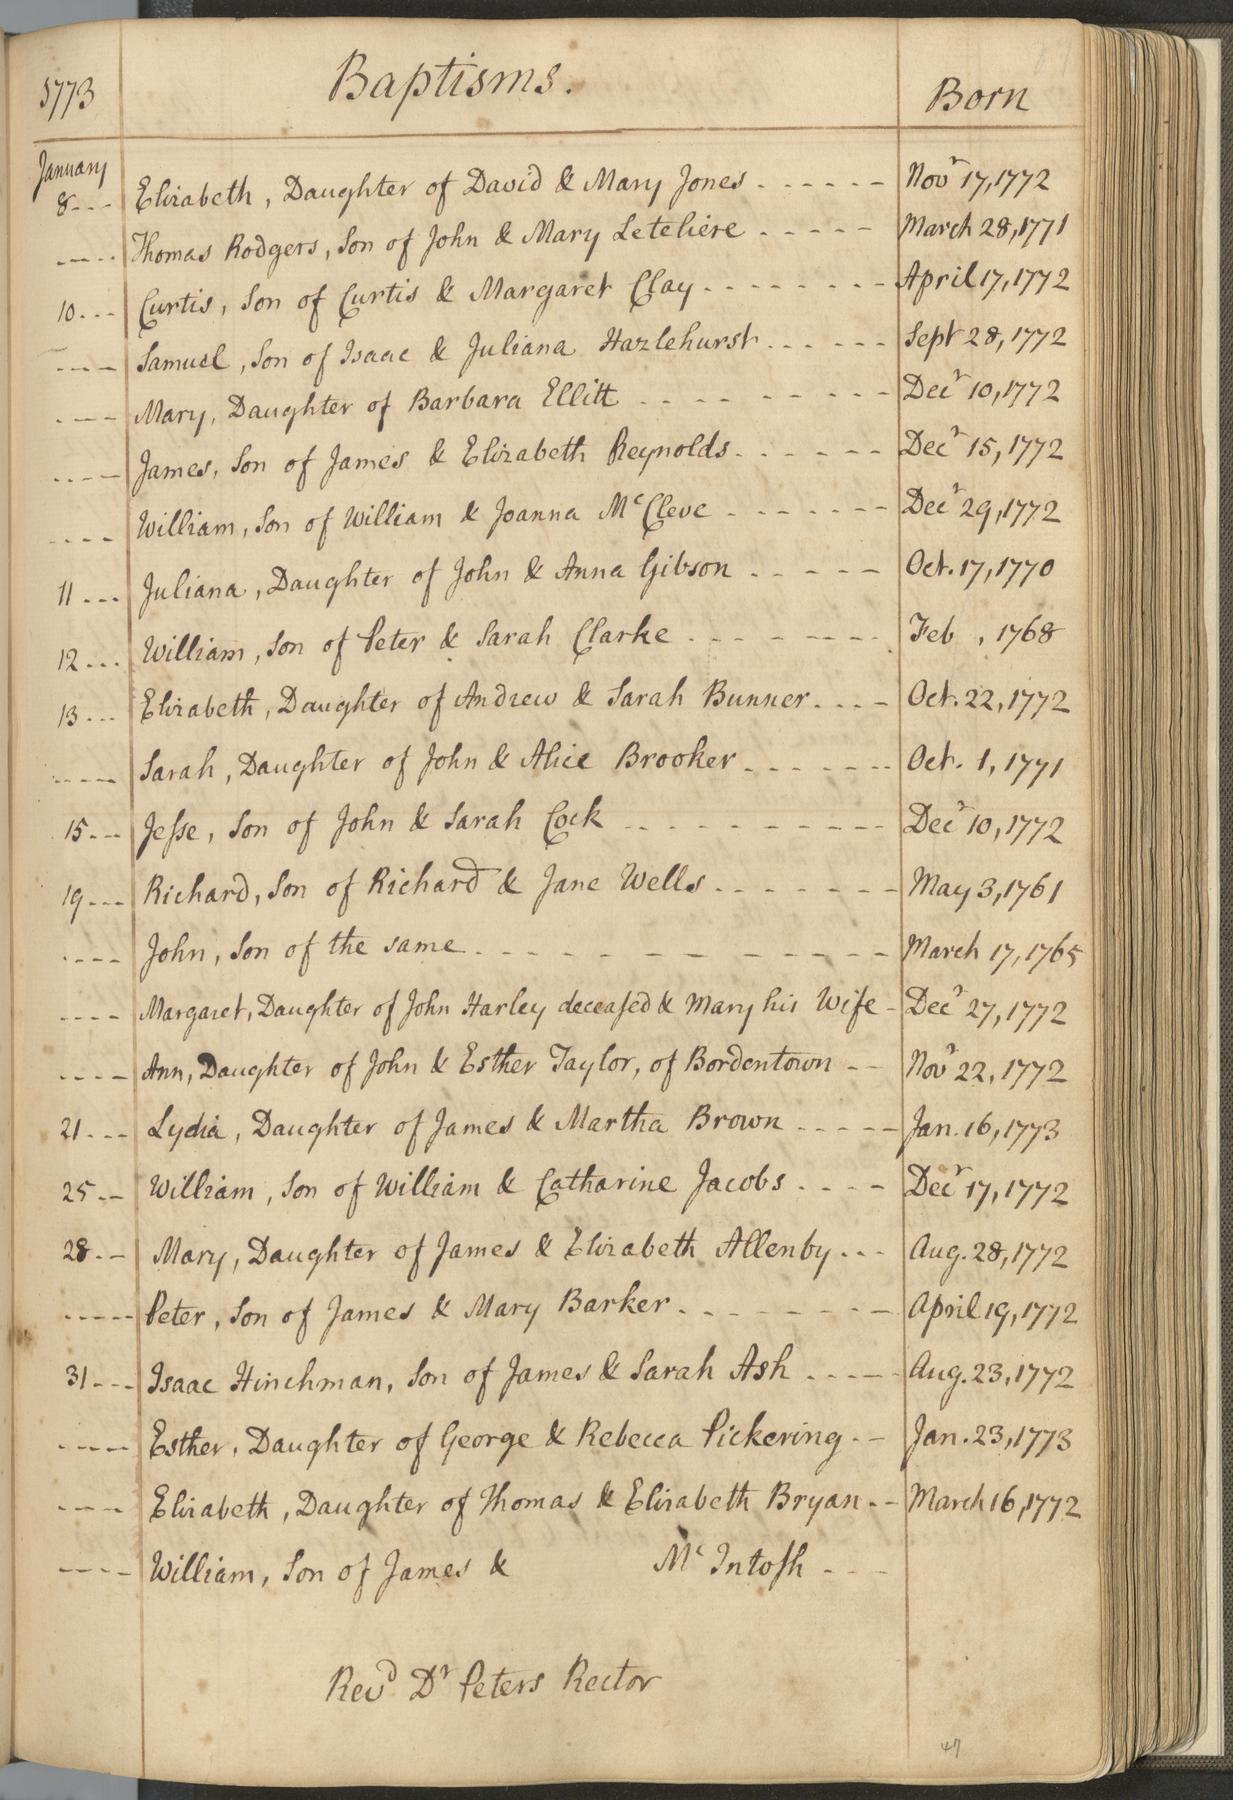 1773 Baptisms. Born
January
8--- Elizabeth, Daughter of David & Mary Jones ------ Novr 17, 1772
---- Thomas Rodgers, Son of John & Mary Leteliere ----- March 28, 1771
10--- Curtis, Son of Curtis & Margaret Clay -------- April 17, 1772
---- Samuel, Son of Isaac & Juliana Hazlehurst ------ Sept 28, 1772
---- Mary, Daughter of Barbara Ellitt --------- Decr 10, 1772
---- James, Son of James & Elizabeth Reynolds ------ Decr 15, 1772
---- William, Son of William & Joanna McCleve ------- Decr 29, 1772
11--- Juliana, Daughter of John & Anna Gibson ----- Oct. 17, 1770
12--- William, Son of Peter & Sarah Clarke -------- Feb , 1768
13--- Elizabeth, Daughter of Andrew & Sarah Bunner ---- Oct. 22, 1772
---- Sarah, Daughter of John & Alice Brooker ------- Oct. 1, 1771
15--- Jeſse, Son of John & Sarah Cock ---------- Decr 10, 1772
19--- Richard, Son of Richard & Jane Wells ------- May 3, 1761
---- John, Son of the same ----------- March 17, 1765
---- Margaret, Daughter of John Harley deceaſed & Mary his Wife - Decr 27, 1772
---- Ann, Daughter of John & Esther Taylor, of Bordentown -- Novr 22, 1772
21--- Lydia, Daughter of James & Martha Brown ----- Jan. 16, 1773
25-- William, Son of William & Catharine Jacobs ---- Decr 17, 1772
28-- Mary, Daughter of James & Elizabeth Allenby --- Aug. 28, 1772
----- Peter, Son of James & Mary Barker -------- April 19, 1772
31--- Isaac Hinchman, Son of James & Sarah Ash ----- Aug. 23, 1772
---- Esther, Daughter of George & Rebecca Pickering -- Jan. 23, 1773
--- Elizabeth, Daughter of Thomas & Elizabeth Bryan -- March 16, 1772
---- William, Son of James & McIntoſh ---
Revd Dr Peters Rector
47